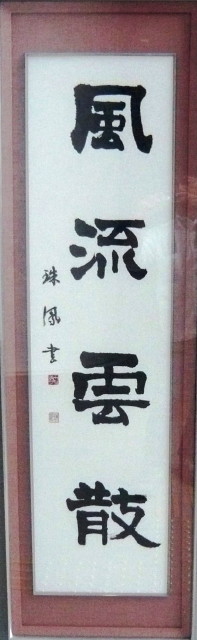 風流雲散
珠鳳書